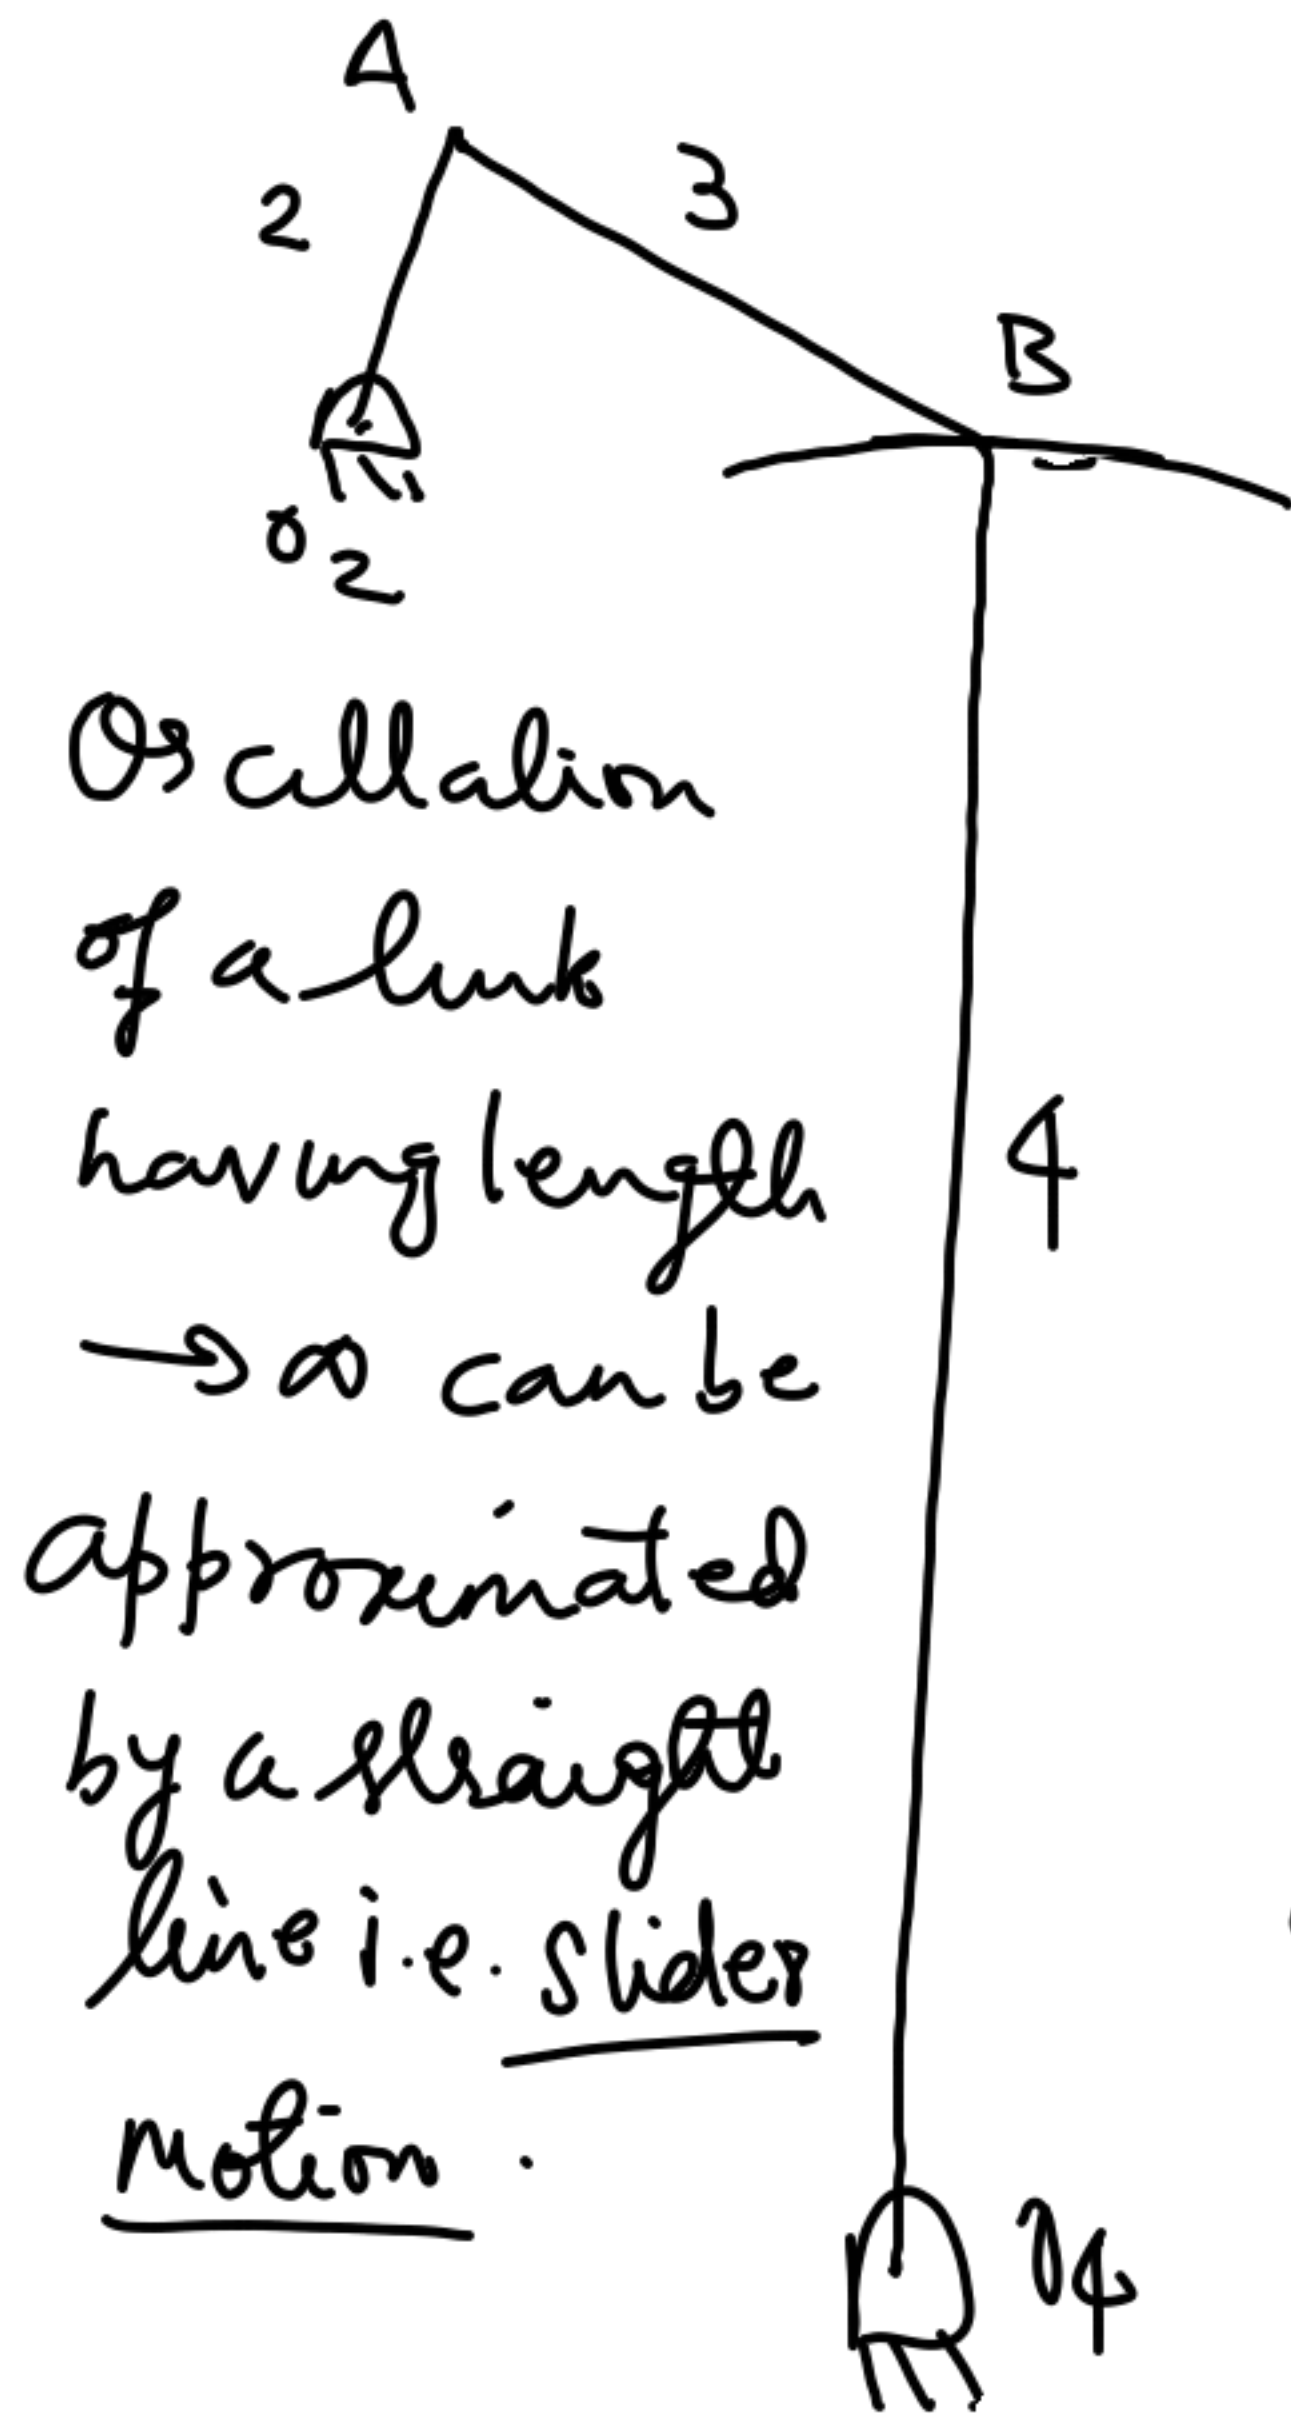 A
2
3
B
O2
Oscillation
of a link
having length
→ ∞ can be
approximated
by a straight
line i.e. slider
motion.
4
O4